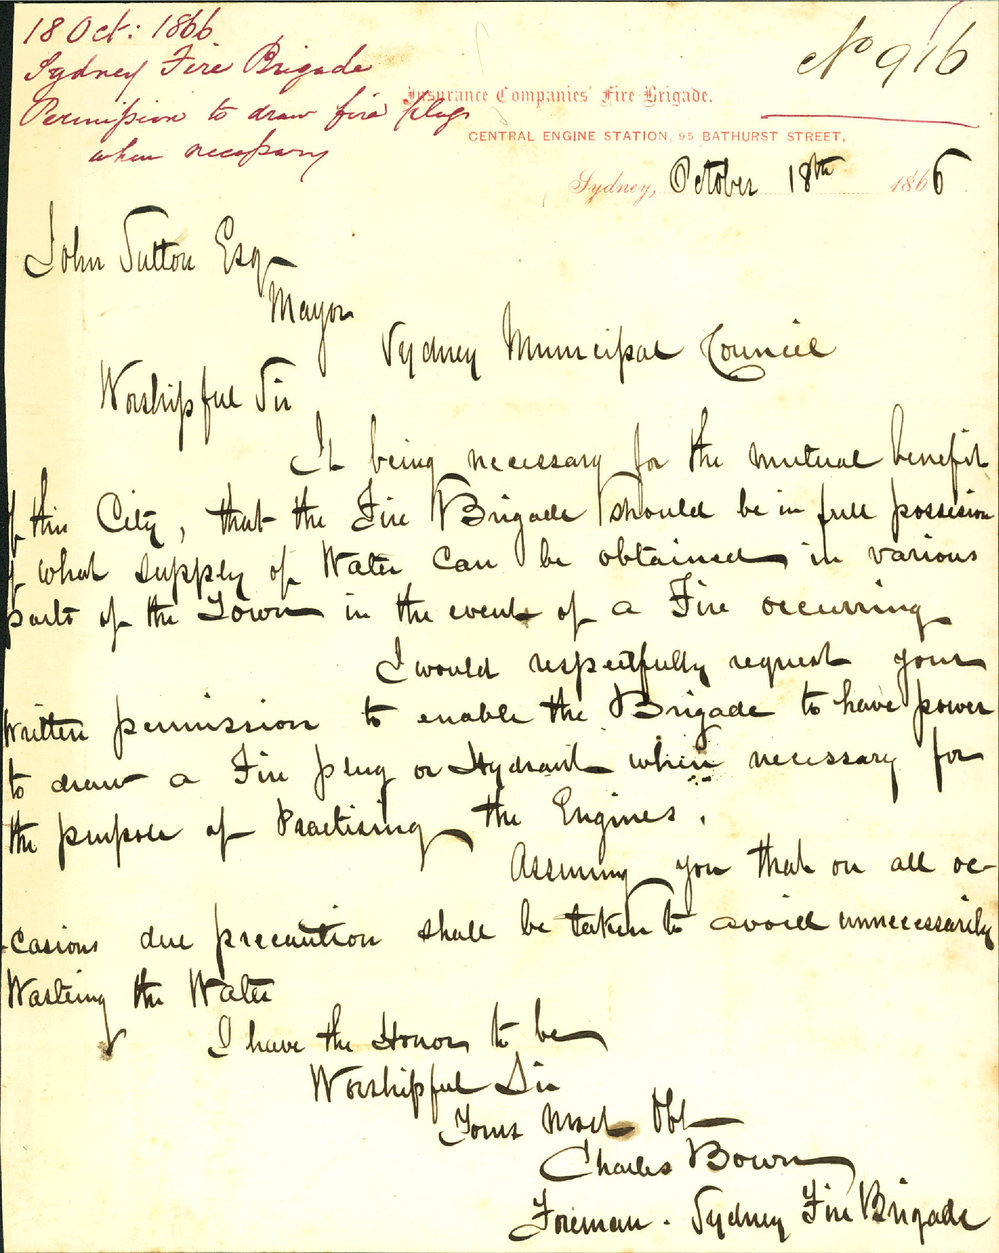 18 Oct: 1866
Sydney Fire Brigade
Permission to draw fire plugs
when necessary
No 916
Insurance Companies' Fire Brigade.
CENTRAL ENGINE STATION, 95 BATHURST STREET,
Sydney, October 18th 1866
John Sutton Esq
Mayor
Sydney Municipal Council
Worshipful Sir
It being necessary for the mutual benefit
of this City, that the Fire Brigade should be in full possesion
of what supply of Water can be obtained in various
parts of the Town in the event of a Fire occurring
I would respectfully request your
written permission to enable the Brigade to have power
to draw a Fire plug or Hydrant when necessary for
the purpose of Practising the Engines.
Assuring you that on all oc-
-casions due precaution shall be taken to avoid unnecessarily
Wasteing the Water
I have the Honor to be
Worshipful Sir
Yours Most Obt
Charles Bown
Foreman. Sydney Fire Brigade